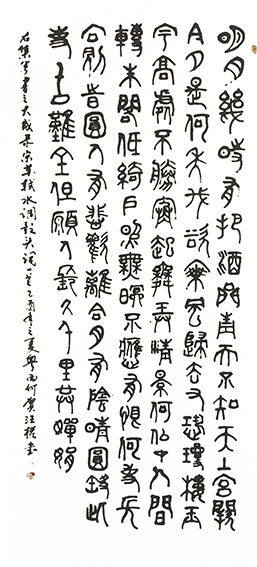 明月幾時有把酒問青天不知天上宮闕
今夕是何年我欲乘風歸去又恐瓊樓玉
宇高處不勝寒起舞弄清影何似在人間
轉朱閣低綺戶照無眠不應有恨何事長
向別時圓人有悲歡離合月有陰晴圓缺此
事古難全但願人長久千里共嬋娟
書之大成录宋苏軾水調歌头詞一首乙酉年之夏粤西